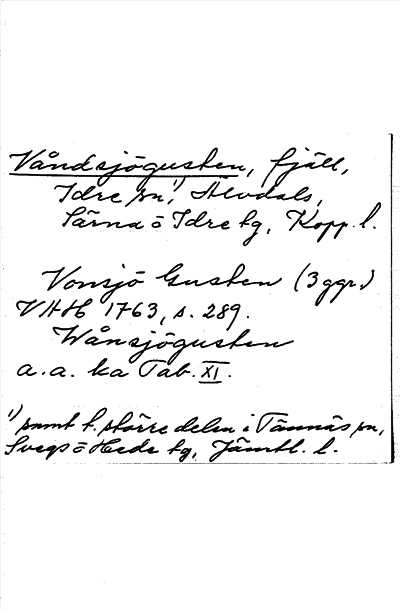 Våndsjögusten, fjäll,
Idre sn¹⁾, Älvdals,
Särna o Idre tg, Kopp. l.
Vonsjö Gusten (3 ggr.)
VAH 1763, s. 289.
Wånsjögusten
a. a. ka Tab. XI.
¹⁾ samt t. större delen i Tännäs sn,
Svegs o Hede tg, Jämtl. l.